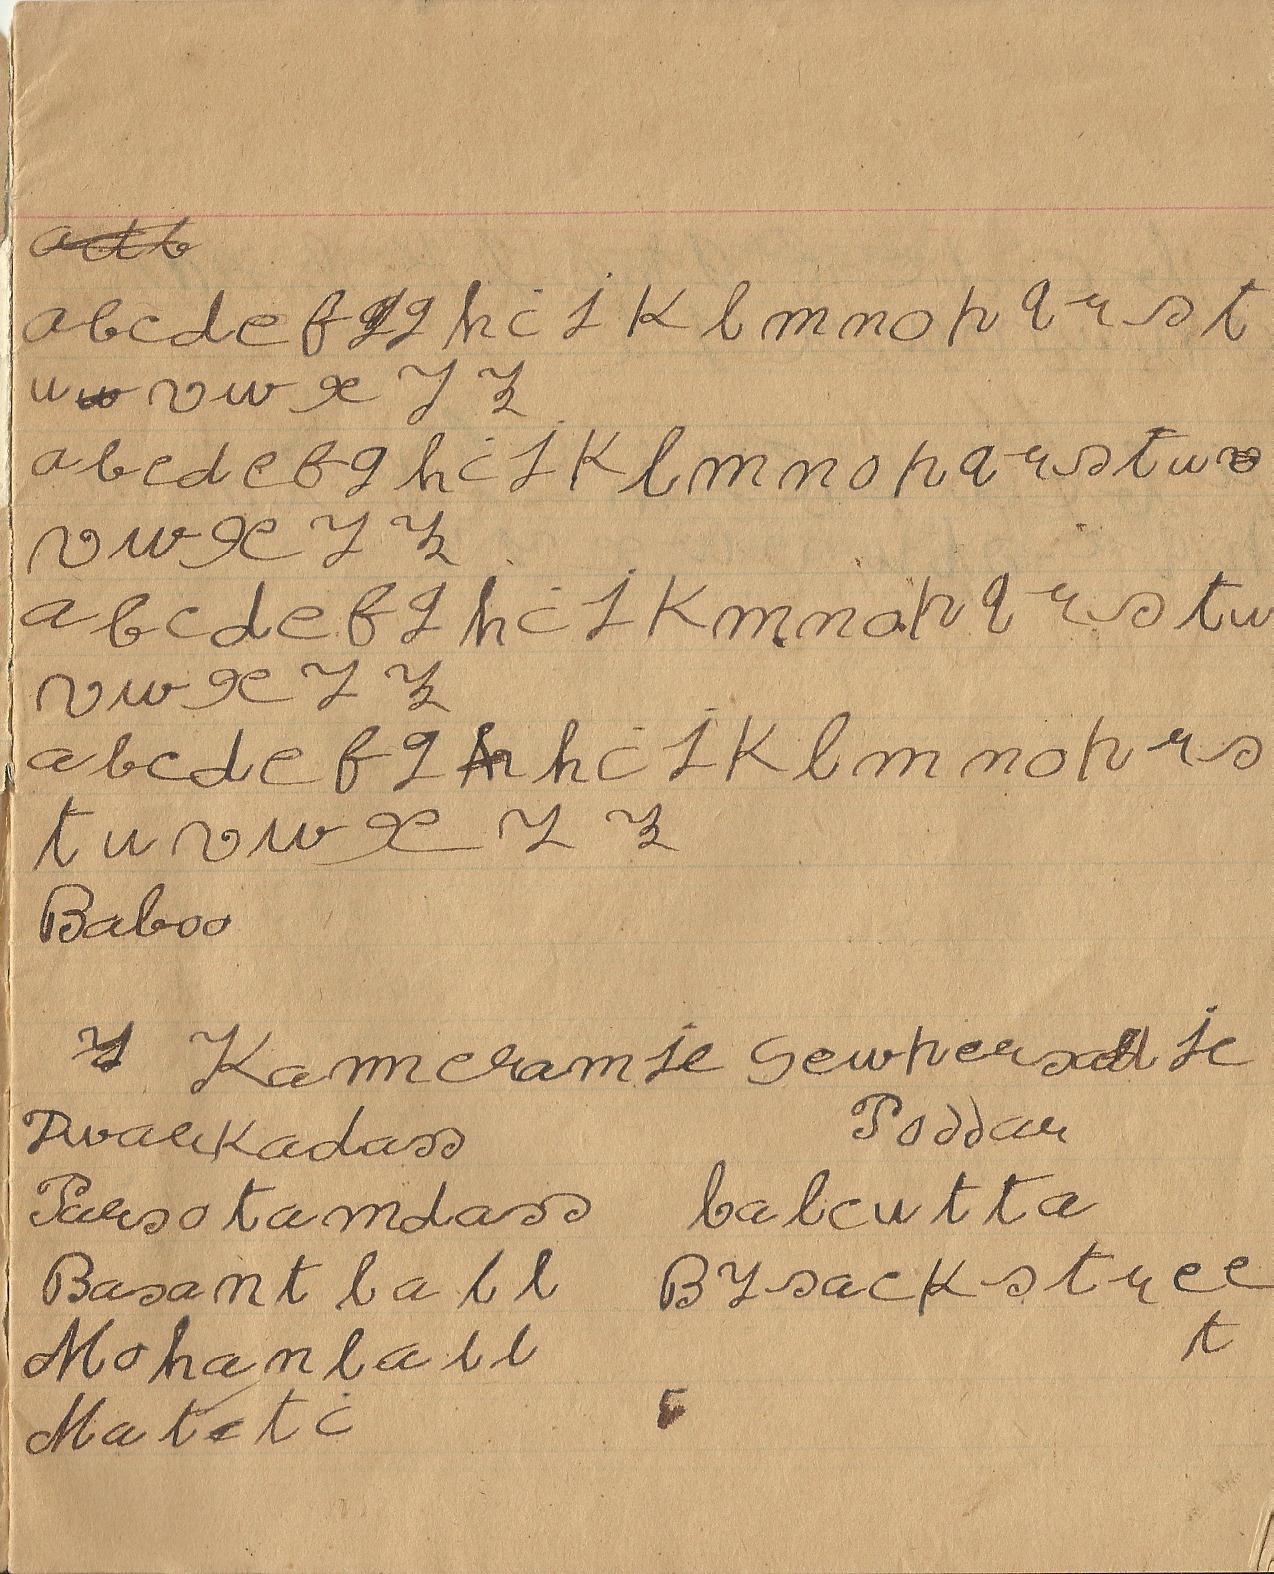 abcdefgghijklmnopqrst
uvwxyz
abcdefghijklmnopqrstuv
vwxyz
abcdefghijkmnopqrstu
vwxyz
abcdefghhijklmnoprs
tuvwxyz
Baboo
Kanneramje Sewpersadje
Dwarkadass Poddar
Parsotamdass balcutta
Basantlall Bysackstree
Mohanlall t
Mateti